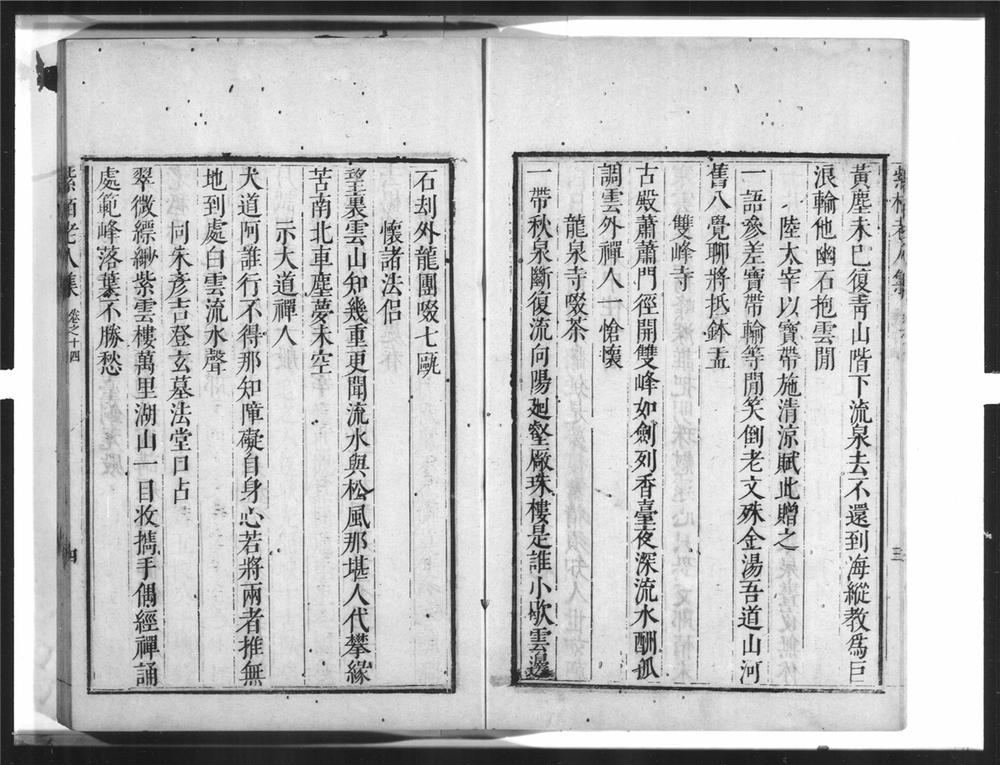 黃塵未已復靑山階下流泉去不還到海縱教爲巨
浪輸他幽石抱雲閒
陸太宰以寶帶施清凉賦此贈之
一語參差寶帶輸等閒笑倒老文殊金湯吾道山河
舊八覺聊將抵鉢盂
雙峰寺
古殿蕭蕭門徑開雙峰如劍列香臺夜深流水酬孤
調雲外禪人一愴懷
龍泉寺啜茶
一帶秋泉斷復流向陽廻壑厰珠樓是誰小歇雲邊
三
石刧外龍團啜七甌
懷諸法侶
望裏雲山知幾重更聞流水與松風那堪人代攀緣
苦南北車塵夢未空
示大道禪人
大道阿誰行不得那知障礙自身心若將兩者推無
地到處白雲流水聲
同朱彥吉登玄墓法堂口占
翠微縹緲紫雲樓萬里湖山一目收攜手偶經禪誦
處範峰落葉不勝愁
紫栢老人集 卷之十四
四